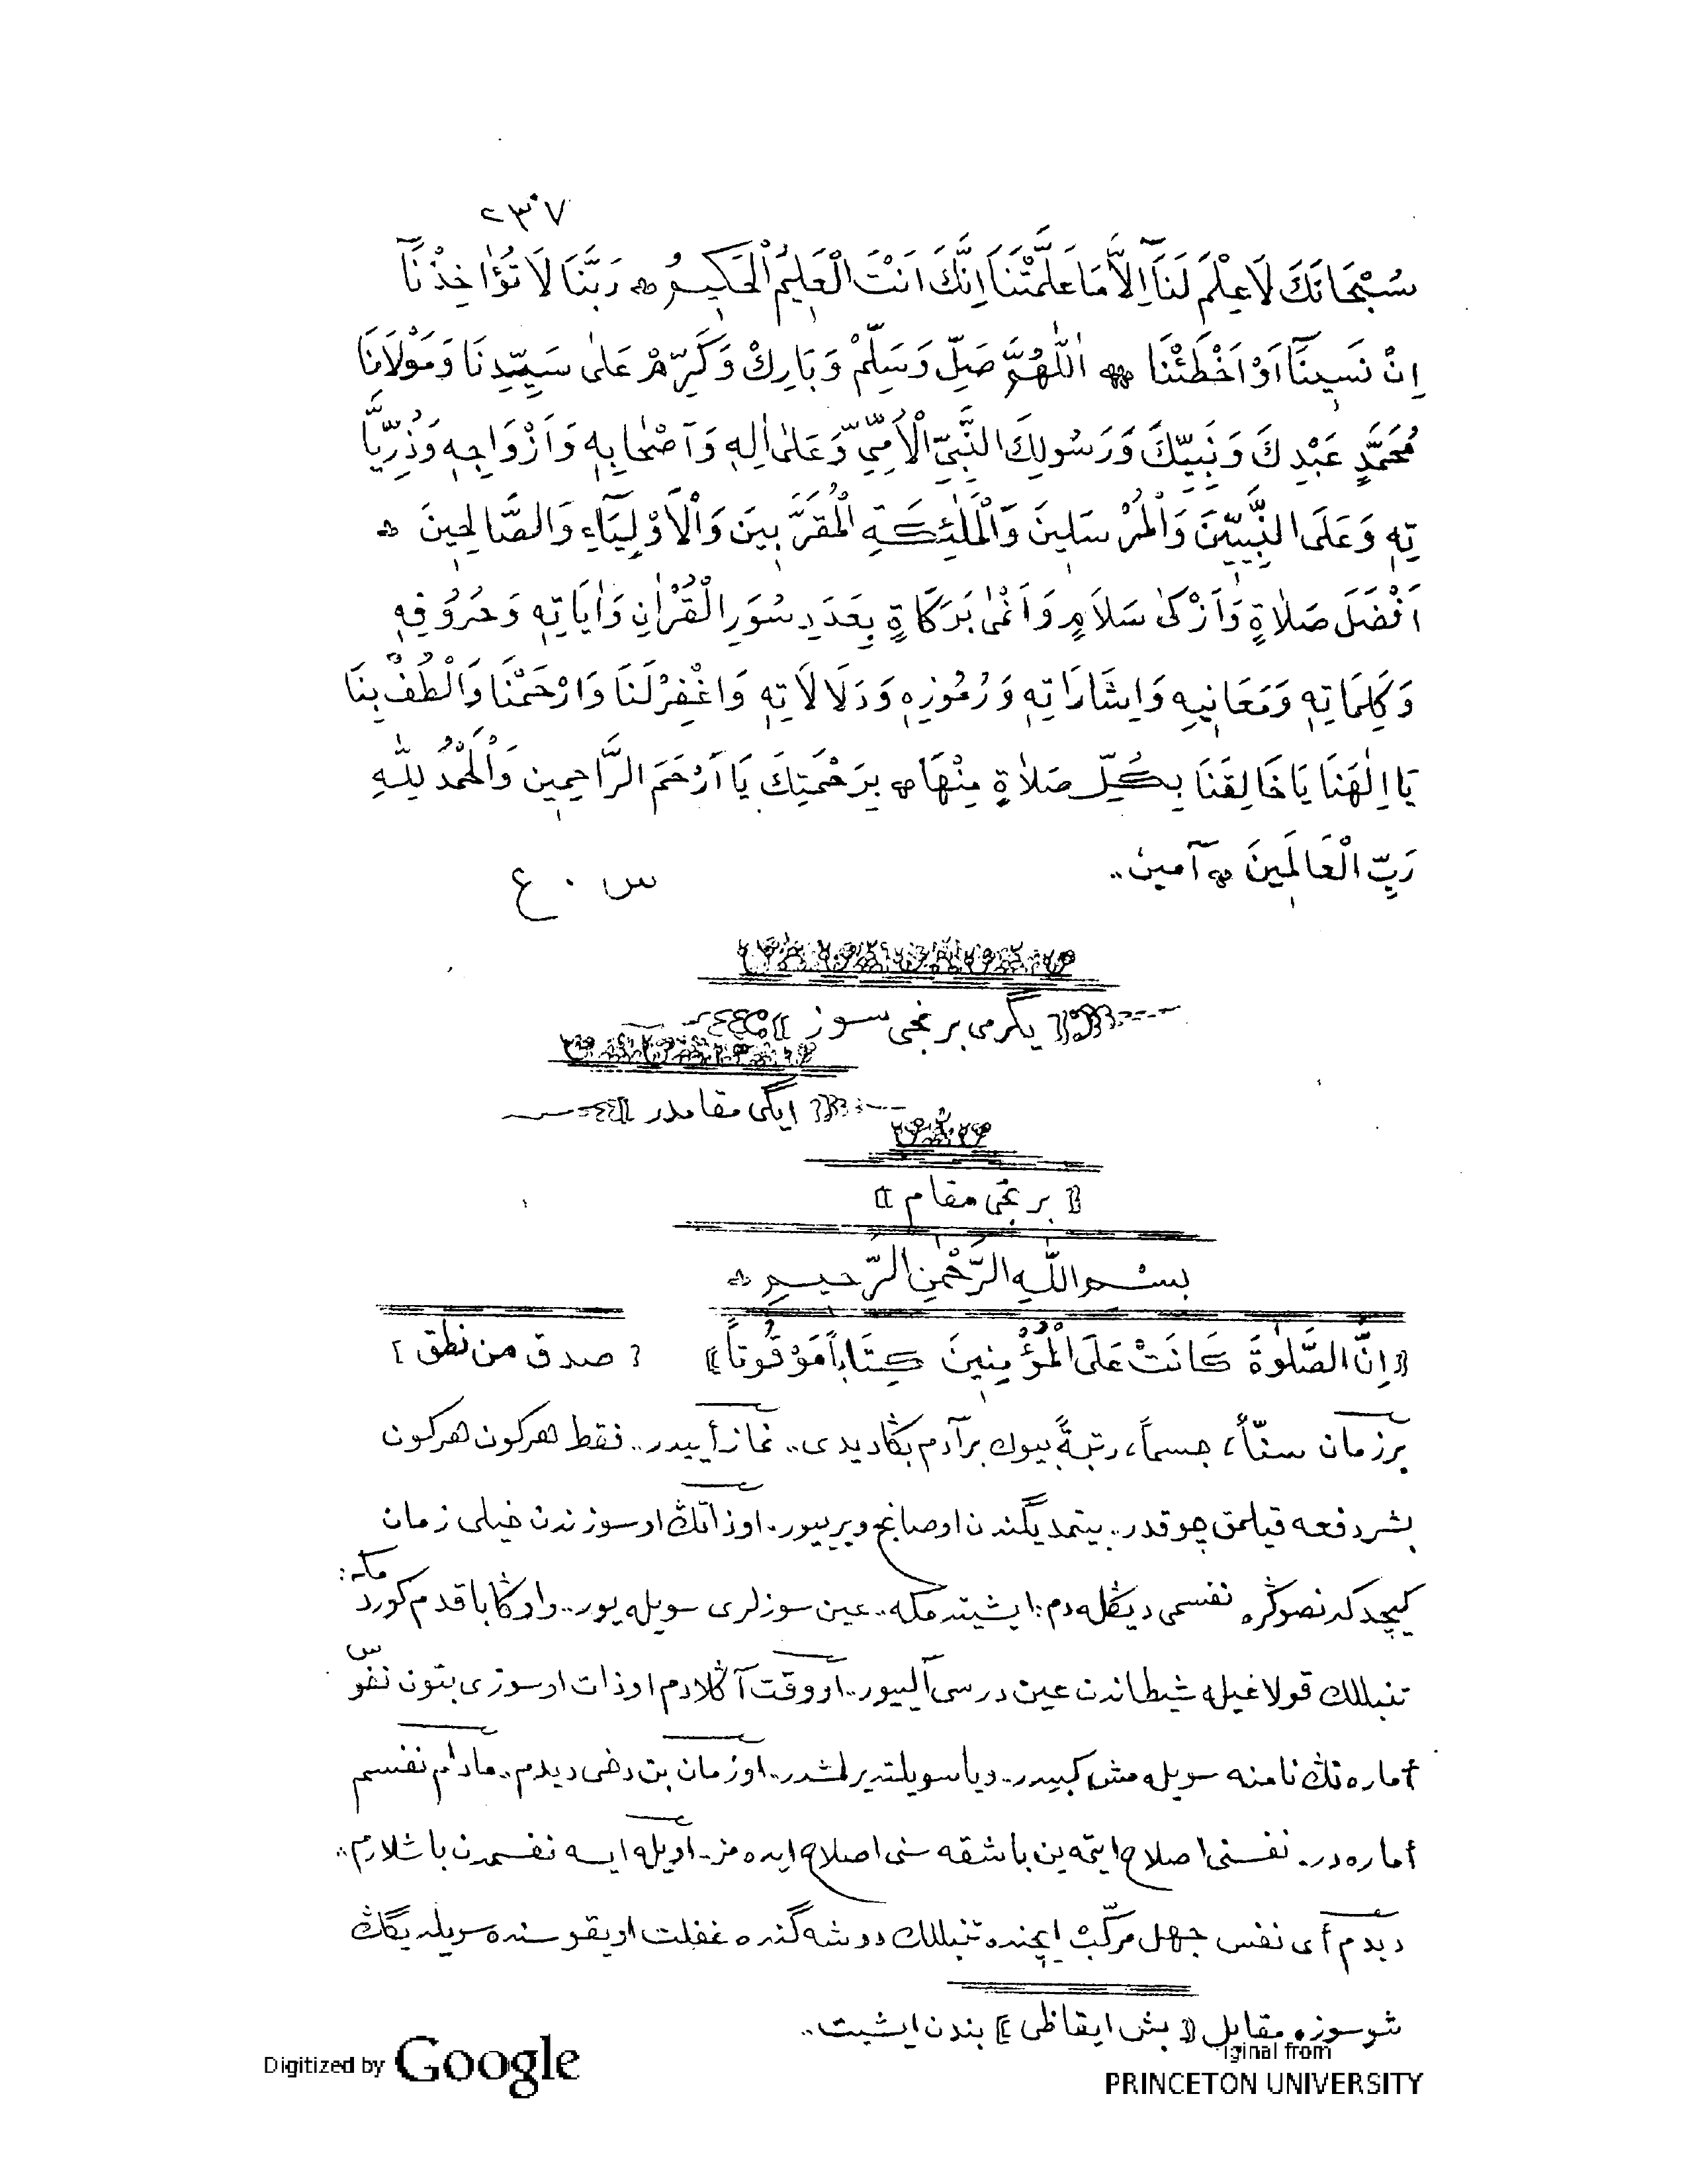 ٢٣٠٧
سُبْحَانَكَ لَا عِلْمَ لَنَٓا اِلَّا مَا عَلَّمْتَنَا اِنَّكَ اَنْتَ الْعَلِيمُ الْحَكِيمُ رَبَّنَا لَا تُؤَاخِذْنَٓا
اِنْ نَسِينَٓا اَوْ اَخْطَئْنَا اَللّٰهُمَّ صَلِّ وَسَلِّمْ وَبَارِكْ وَكَرِّمْ عَلٰى سَيِّدِنَا وَمَوْلَانَا
مُحَمَّدٍ عَبْدِكَ وَنَبِيِّكَ وَرَسُولِكَ النَّبِيِّ الْاُمِّيِّ وَعَلٰى اٰلِهِ وَاَصْحَابِهِ وَاَزْوَاجِهِ وَذُرِّيَّا
تِهِ وَعَلَى النَّبِيِّينَ وَالْمُرْسَلِينَ وَالْمَلٰئِكَةِ الْمُقَرَّبِينَ وَالْاَوْلِيَٓاءِ وَالصَّالِحِينَ
اَفْضَلَ صَلَاةٍ وَاَزْكٰى سَلَامٍ وَاَنْمٰى بَرَكَاةٍ بِعَدَدِ سُوَرِ الْقُرْاٰنِ وَاٰيَاتِهِ وَحُرُوفِهِ
وَكَلِمَاتِهِ وَمَعَانِيهِ وَاِشَارَاتِهِ وَرُمُوزِهِ وَدَلَالَاتِهِ وَاغْفِرْلَنَا وَارْحَمْنَا وَالْطُفْ بِنَا
يَا اِلٰهَنَا يَا خَالِقَنَا بِكُلِّ صَلَاةٍ مِنْهَا بِرَحْمَتِكَ يَا اَرْحَمَ الرَّاحِمِين وَالْحَمْدُ لِلّٰهِ
رَبِّ الْعَالَمِينَ آمين..
س . ع
يگرمى برنجى سوز
ايكى مقامدر
﴿ برنجى مقام ﴾
بِسْمِ اللّٰهِ الرَّحْمٰنِ الرَّحِيمِ
﴿ اِنَّ الصَّلٰوةَ كَانَتْ عَلَى الْمُؤْمِنِينَ كِتَاباً مَوْقُوتاً ﴾ [ صدق من نطق ]
بر زمان سنّاً، جسماً، رتبةً بيوك بر آدم بڭا ديدى.. نماز أييدر.. فقط هركون هركون
بشر دفعه قيلمق چوقدر.. بيتمديگندن اوصانج ويرييور.. او ذاتڭ او سوزندن خيلى زمان
گيچدكدنصوڭره نفسمى ديڭله دم: ايشيتدمكه.. عين سوزلرى سويله يور.. واوڭا باقدم كوردمكه:
تنبللك قولاغيله شيطاندن عين درسى آلييور.. او وقت آڭلادم او ذات او سوزى بتون نفوس
أماره نڭ نامنه سويله مش كبيدر.. ويا سويلتديرلمشدر.. او زمان بن دخى ديدم.. مادام نفسم
أماره در. نفسنى اصلاح ايتمه ين باشقه سنى اصلاح ايده مز.. اويله ايسه نفسمدن باشلارم..
ديدم أى نفس جهل مركّب ايچنده تنبللك دوشه گنده غفلت اويقوسنده سويلديگڭ
شو سوزه مقابل ﴿ بش ايقاظى ﴾ بندن ايشيت..
Digitized by Google
iginal from
PRINCETON UNIVERSITY